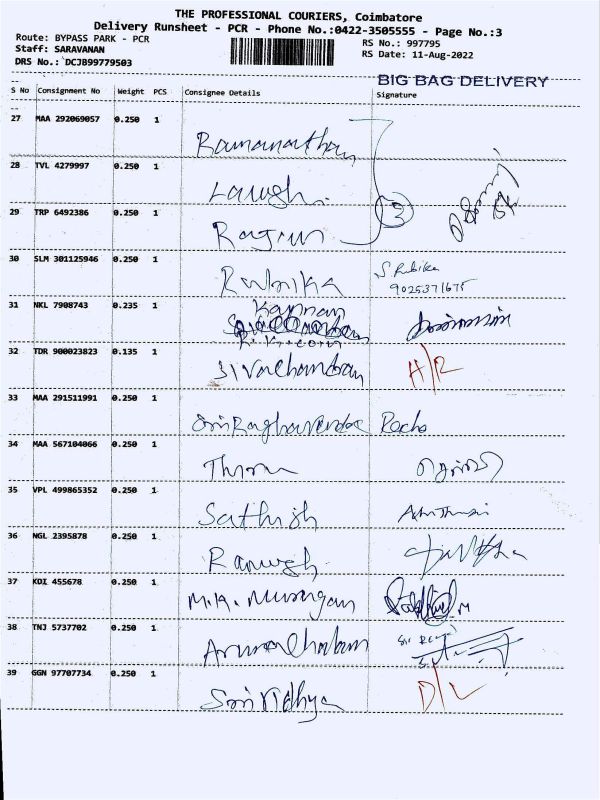 THE PROFESSIONAL COURIERS, Coimbatore
Delivery Runsheet - PCR - Phone No.:0422-3505555 - Page No.:3
Route: BYPASS PARK - PCR
RS No.: 997795
Staff: SARAVANAN
RS Date: 11-Aug-2022
DRS No.: DCJB99779503
BIG BAG DELIVERY
S No Consignment No Weight PCS Consignee Details Signature
27 MAA 292069057 0.250 1 Ramanathan
28 TVL 4279997 0.250 1
29 TRP 6492386 0.250 1 3
30 SLM 301125946 0.250 1 S. Rubika
9025371675
31 NKL 7908743 0.235 1 Kannan
32 TDR 900023823 0.135 1 Sivachandran
33 MAA 291511991 0.250 1 Sri Raghavendra
34 MAA 567104066 0.250 1
35 VPL 499865352 0.250 1 Sathish
36 NGL 2395878 0.250 1 Ramesh
37 KDI 455678 0.250 1 M.K. Murugan
38 TNJ 5737702 0.250 1 Arunachalam
39 GGN 97707734 0.250 1 Sri Vidhya D/L